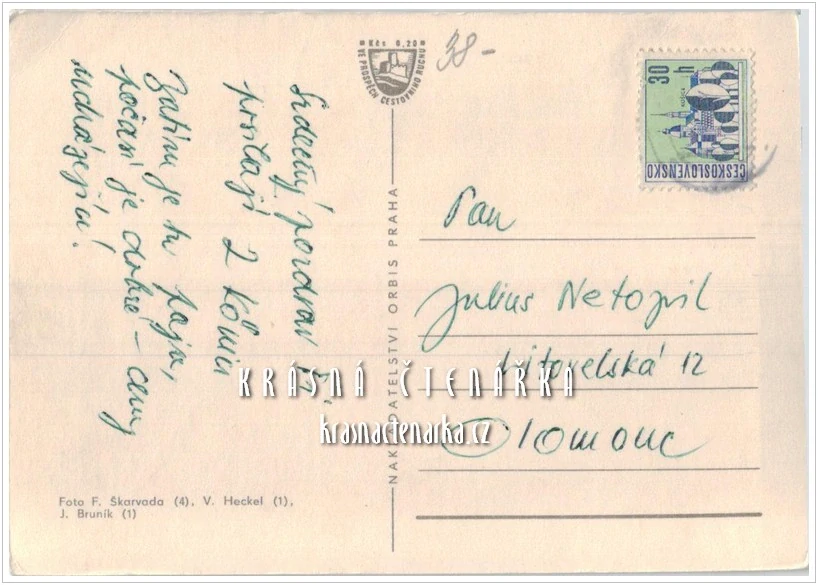 Kčs 0,20
VE PROSPĚCH CESTOVNÍHO RUCHU
38-
30 h
KOŠICE
ČESKOSLOVENSKO
Srdečný pozdrav
posílají 2
Zatím je tu
počasí je dobré – ceny
ucházející!
NAKLADATELSTVÍ ORBIS PRAHA
Pan
Julius Netopil
Litovelská 12
Olomouc
KRÁSNÁ ČTENÁŘKA
krasnactenarka.cz
Foto F. Škarvada (4), V. Heckel (1),
J. Bruník (1)